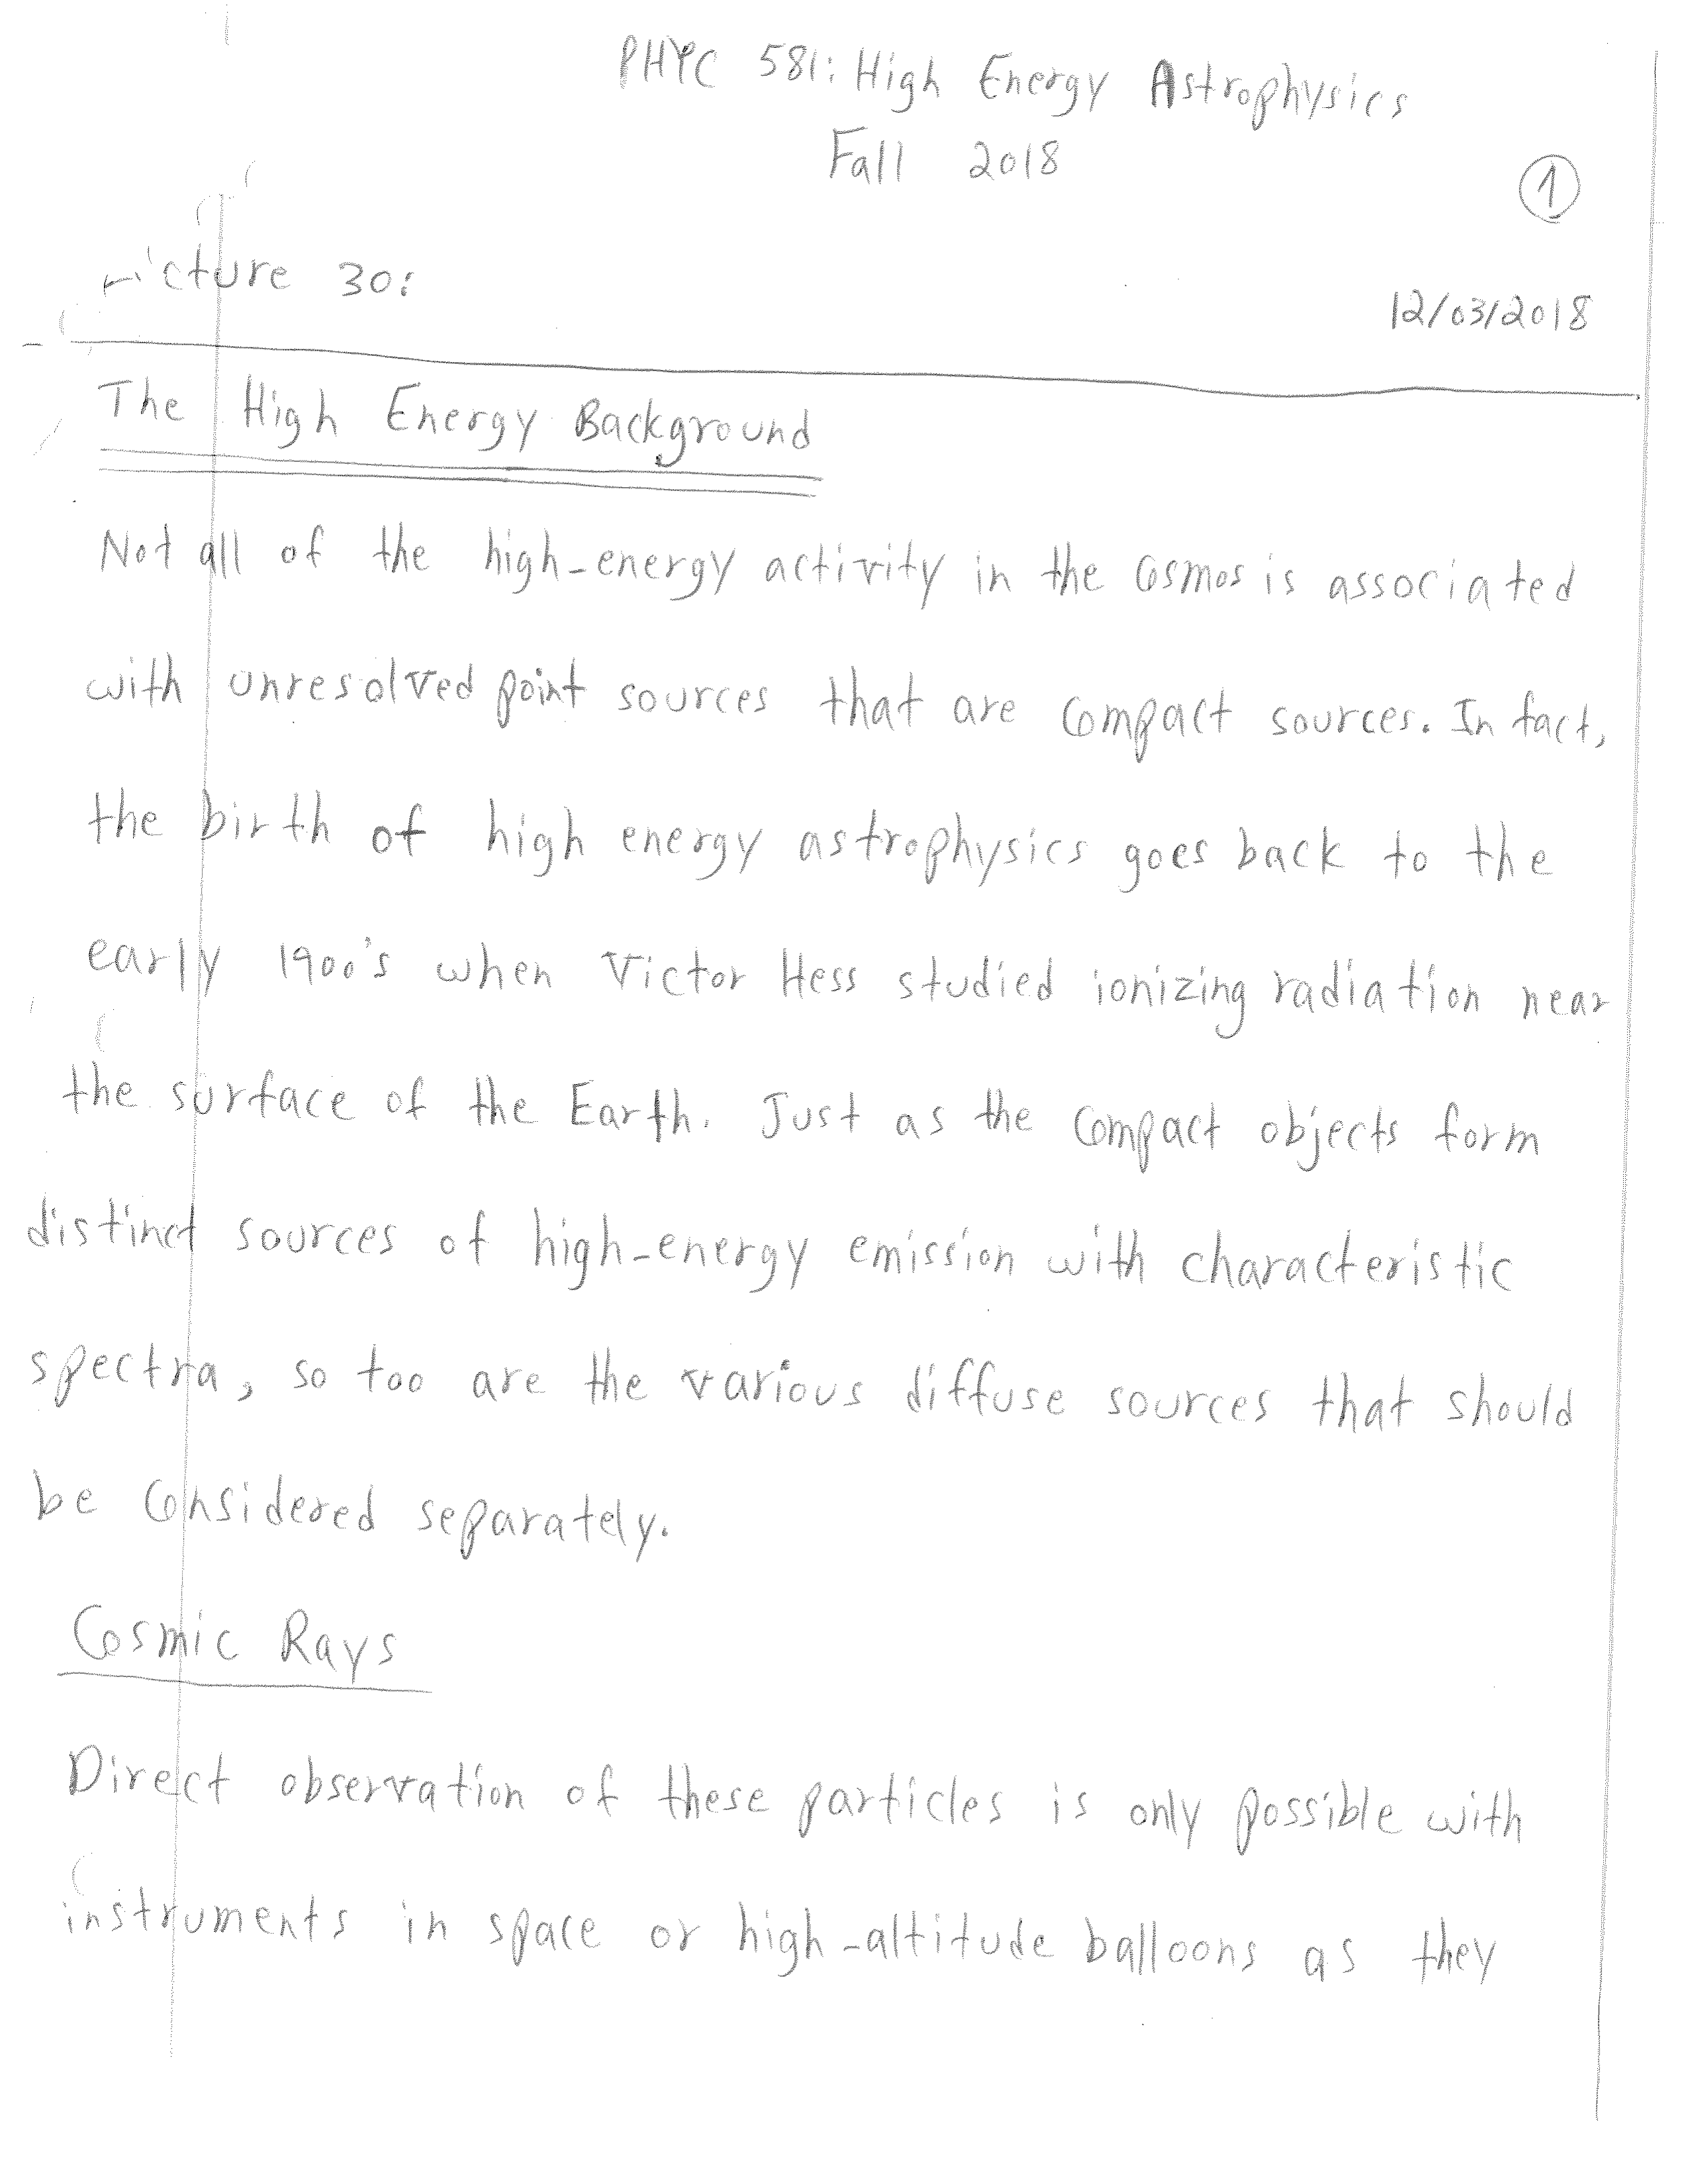 PHYC 581: High Energy Astrophysics
Fall 2018
1
30:
12/03/2018
The High Energy Background
Not all of the high-energy activity in the Cosmos is associated
with unresolved point sources that are compact sources. In fact,
the birth of high energy astrophysics goes back to the
early 1900's when Victor Hess studied ionizing radiation near
the surface of the Earth. Just as the compact objects form
distinct sources of high-energy emission with characteristic
spectra, so too are the various diffuse sources that should
be considered separately.
Cosmic Rays
Direct observation of these particles is only possible with
instruments in space or high-altitude balloons as they